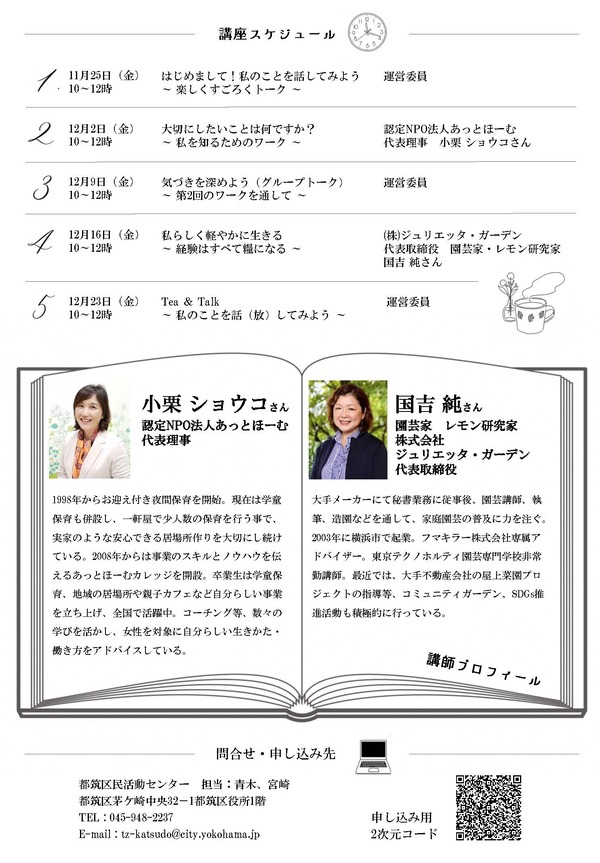 講座スケジュール
1. 11月25日（金） はじめまして！私のことを話してみよう 運営委員
10～12時 ～ 楽しくすごろくトーク ～
2 12月2日（金） 大切にしたいことは何ですか？ 認定NPO法人あっとほーむ
10～12時 ～ 私を知るためのワーク ～ 代表理事　小栗 ショウコさん
3 12月9日（金） 気づきを深めよう（グループトーク） 運営委員
10～12時 ～ 第2回のワークを通して ～
4 12月16日（金） 私らしく軽やかに生きる (株)ジュリエッタ・ガーデン
10～12時 ～ 経験はすべて糧になる ～ 代表取締役　園芸家・レモン研究家
国吉 純さん
5 12月23日（金） Tea & Talk 運営委員
10～12時 ～ 私のことを話（放）してみよう ～
小栗 ショウコさん
認定NPO法人あっとほーむ
代表理事
1998年からお迎え付き夜間保育を開始。現在は学童
保育も併設し、一軒屋で少人数の保育を行う事で、
実家のような安心できる居場所作りを大切にし続け
ている。2008年からは事業のスキルとノウハウを伝
えるあっとほーむカレッジを開設。卒業生は学童保
育、地域の居場所や親子カフェなど自分らしい事業
を立ち上げ、全国で活躍中。コーチング等、数々の
学びを活かし、女性を対象に自分らしい生きかた・
働き方をアドバイスしている。
国吉 純さん
園芸家　レモン研究家
株式会社
ジュリエッタ・ガーデン
代表取締役
大手メーカーにて秘書業務に従事後、園芸講師、執
筆、造園などを通して、家庭園芸の普及に力を注ぐ。
2003年に横浜市で起業。フマキラー株式会社専属ア
ドバイザー。東京テクノホルティ園芸専門学校非常
勤講師。最近では、大手不動産会社の屋上菜園プロ
ジェクトの指導等、コミュニティガーデン、SDGs推
進活動も積極的に行っている。
講師プロフィール
問合せ・申し込み先
都筑区民活動センター　担当：青木、宮崎
都筑区茅ケ崎中央32－1都筑区役所1階
TEL：045-948-2237
E-mail：tz-katsudo@city.yokohama.jp
申し込み用
2次元コード